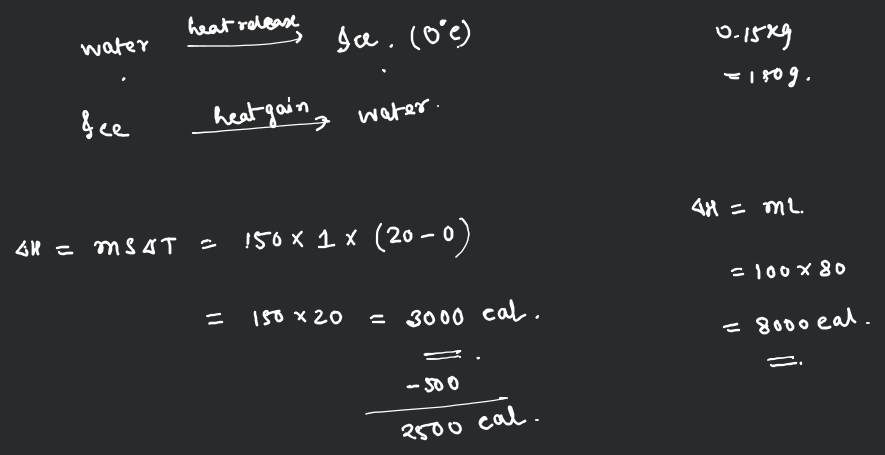 water heat release → Ice. (0°C)
0.15 kg
= 150 g.
Ice heat gain → water.
ΔH = msΔT = 150 × 1 × (20 - 0)
= 150 × 20 = 3000 cal.
- 500
2500 cal.
ΔH = mL.
= 100 × 80
= 8000 cal.